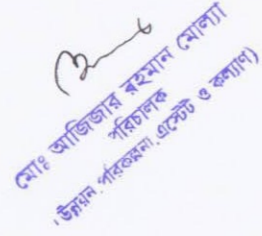 মোঃ আজিজার রহমান মোল্যা
পরিচালক
(উন্নয়ন পরিকল্পনা, এস্টেট ও কল্যাণ)